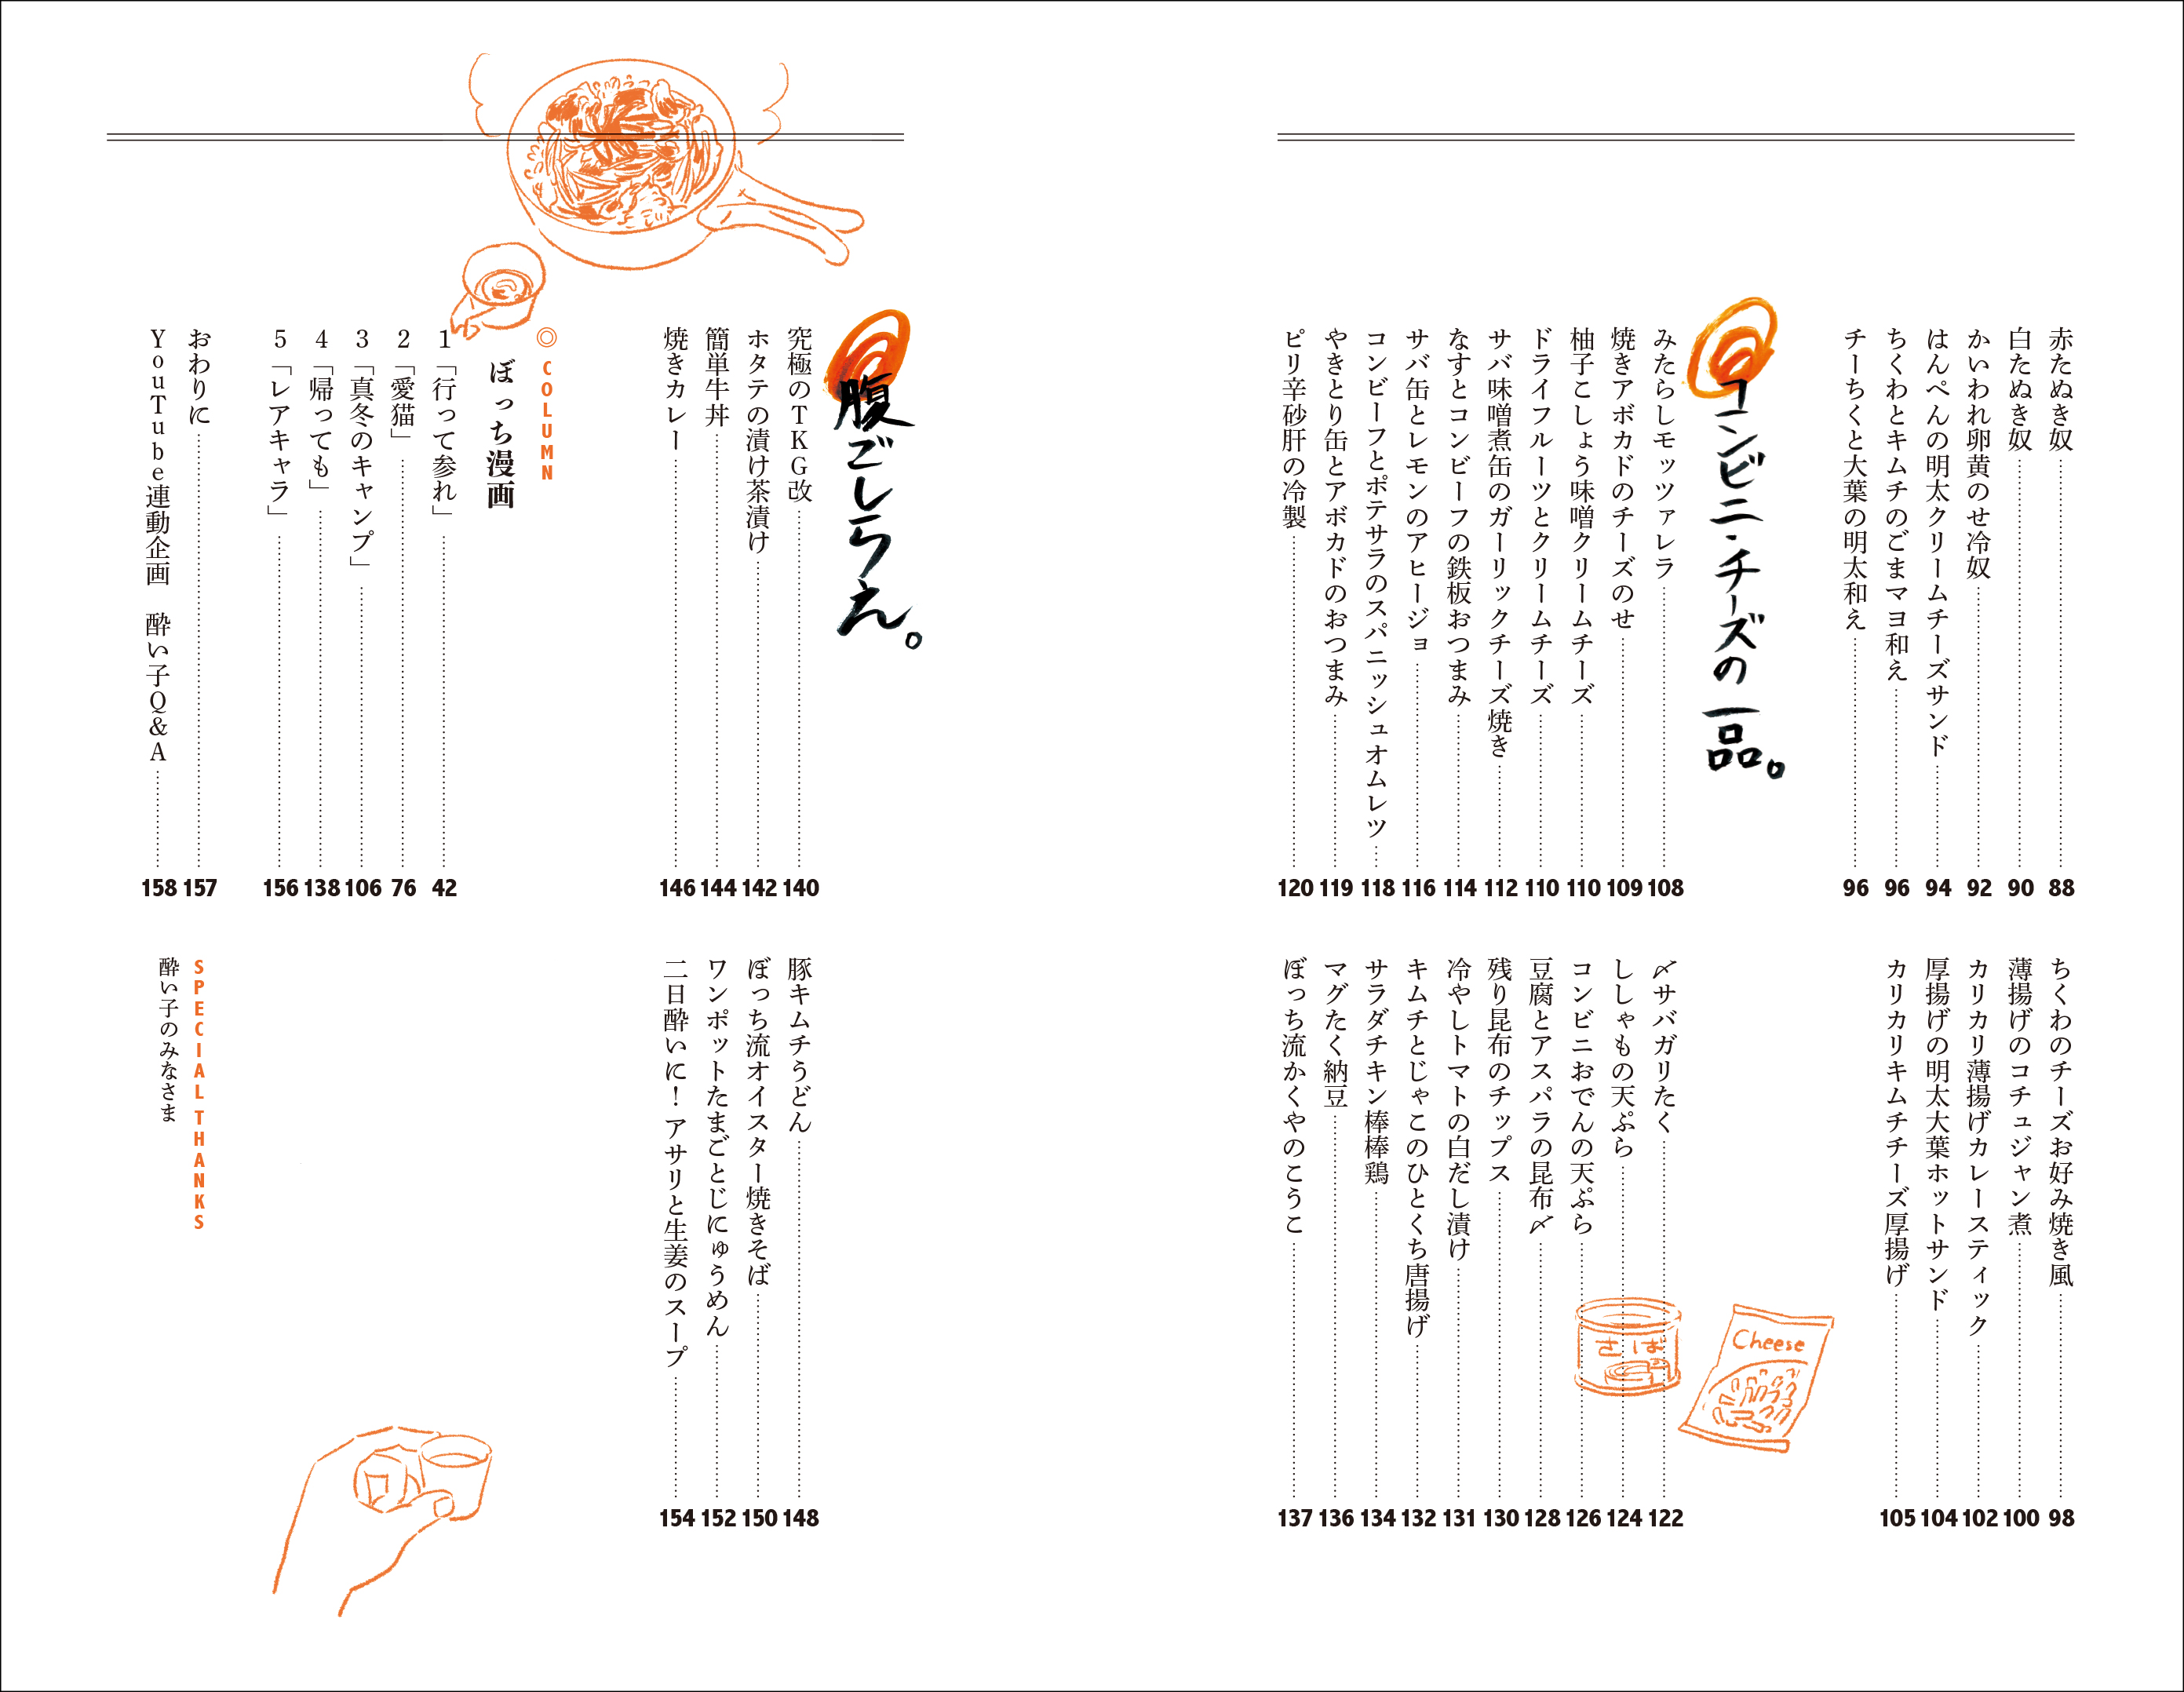 赤たぬき奴 88
白たぬき奴 90
かいわれ卵黄のせ冷奴 92
はんぺんの明太クリームチーズサンド 94
ちくわとキムチのごまマヨ和え 96
チーちくと大葉の明太和え 96
ちくわのチーズお好み焼き風 98
薄揚げのコチュジャン煮 100
カリカリ薄揚げカレースティック 102
厚揚げの明太大葉ホットサンド 104
カリカリキムチチーズ厚揚げ 105
コンビニ・チーズの一品。
みたらしモッツァレラ 108
焼きアボカドのチーズのせ 109
柚子こしょう味噌クリームチーズ 110
ドライフルーツとクリームチーズ 110
サバ味噌煮缶のガーリックチーズ焼き 112
なすとコンビーフの鉄板おつまみ 114
サバ缶とレモンのアヒージョ 116
コンビーフとポテサラのスパニッシュオムレツ 118
やきとり缶とアボカドのおつまみ 119
ピリ辛砂肝の冷製 120
〆サバガリたく 122
ししゃもの天ぷら 124
コンビニおでんの天ぷら 126
豆腐とアスパラの昆布〆 128
残り昆布のチップス 130
冷やしトマトの白だし漬け 131
キムチとじゃこのひとくち唐揚げ 132
サラダチキン棒棒鶏 134
マグたく納豆 136
ぼっち流かくやのこうこ 137
さば
Cheese
腹ごしらえ。
究極のTKG改 140
ホタテの漬け茶漬け 142
簡単牛丼 144
焼きカレー 146
豚キムチうどん 148
ぼっち流オイスター焼きそば 150
ワンポットたまごとじにゅうめん 152
二日酔いに！アサリと生姜のスープ 154
◎COLUMN
ぼっち漫画
1「行って参れ」 42
2「愛猫」 76
3「真冬のキャンプ」 106
4「帰っても」 138
5「レアキャラ」 156
おわりに 157
YouTube連動企画　酔い子Q&A 158
SPECIAL THANKS
酔い子のみなさま